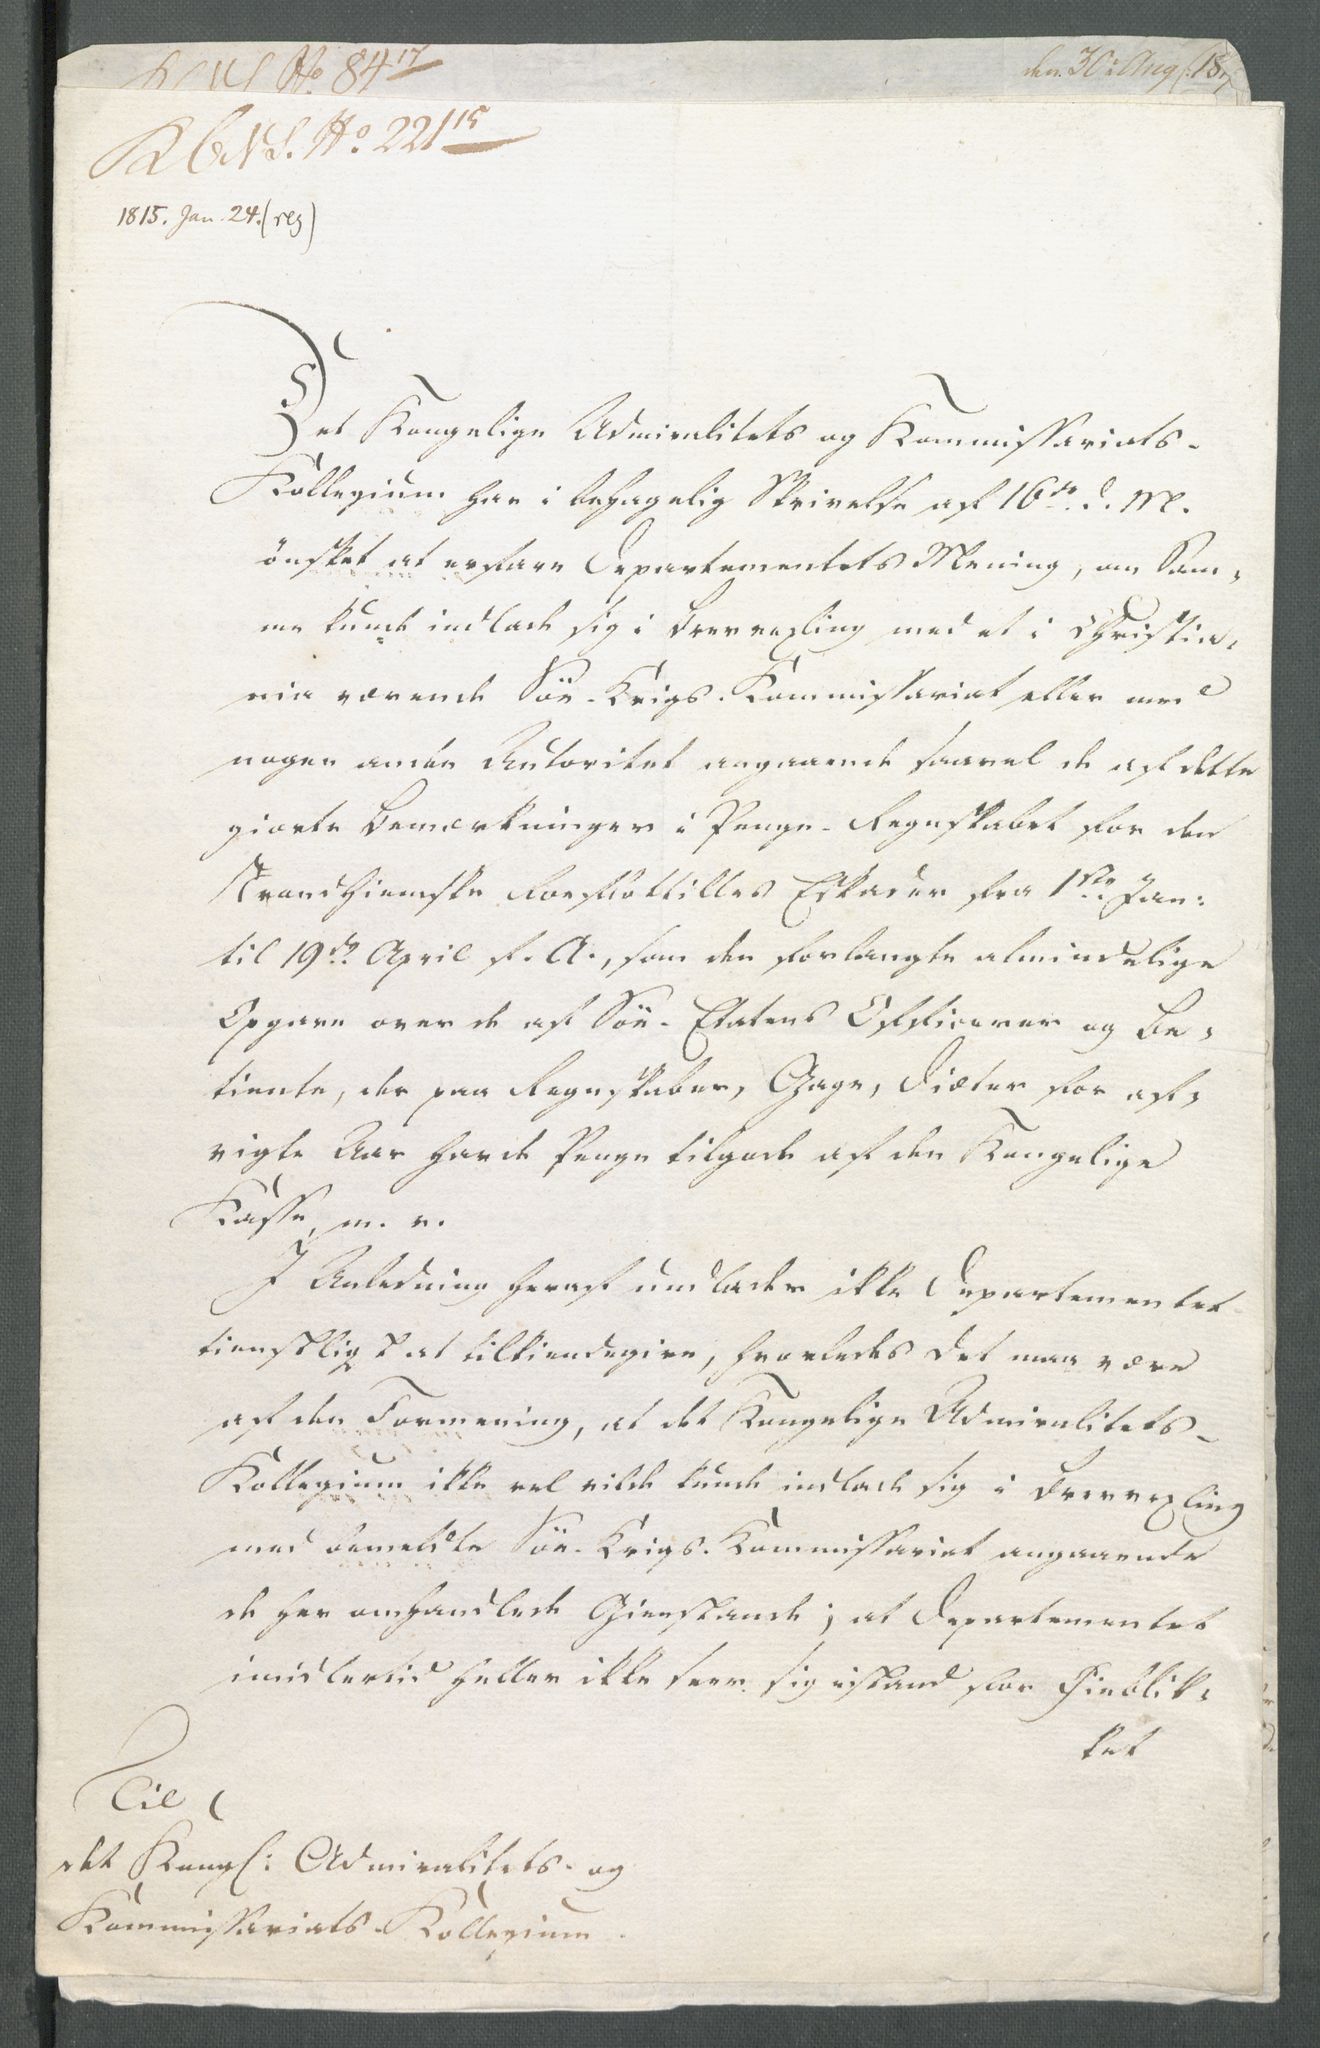 No. 84 17
den 30te Aug. 18
No. 221 15
1815. Jan. 24. (reg)
Det Kongelige Admiralitets og Kommissariats-
Kollegium har i behagelig Skrivelse af 16de d. M.
önsket at erfare Departementets Mening, om Sam-
me kunde indlade sig i Brevvexling med et i Christia-
nia værende Söe-Krigs-Kommissariat eller med
nogen anden Autoritet angaaende saavel de af dette
giorte Bemærkninger i Penge-Regnskabet for den
Trondhiemske Roeflottilles Eskadre fra 1ste Jan:
til 19de April f. A., som den forlangte almindelige
Opgave over de af Söe-Etatens Officerer og Be-
tiente, der paa Regnskaber, Gage, Diæter for af-
vigte Aar havde Penge tilgode af den Kongelige
Kasse, m. v.
I Anledning heraf undlader ikke Departementet
tienstligst at tilkiendegive, hvorledes det maa være
af den Formening, at det Kongelige Admiralitets-
Kollegium ikke vel vilde kunde indlade sig i Brevvexling
med bemeldte Söe-Krigs-Kommissariat angaaende
de her omhandlede Gienstande; at Departementet
imidlertid heller ikke seer sig istand for Öieblik-
ket
Til
det Kongl: Admiralitets- og
Kommissariats-Kollegium.